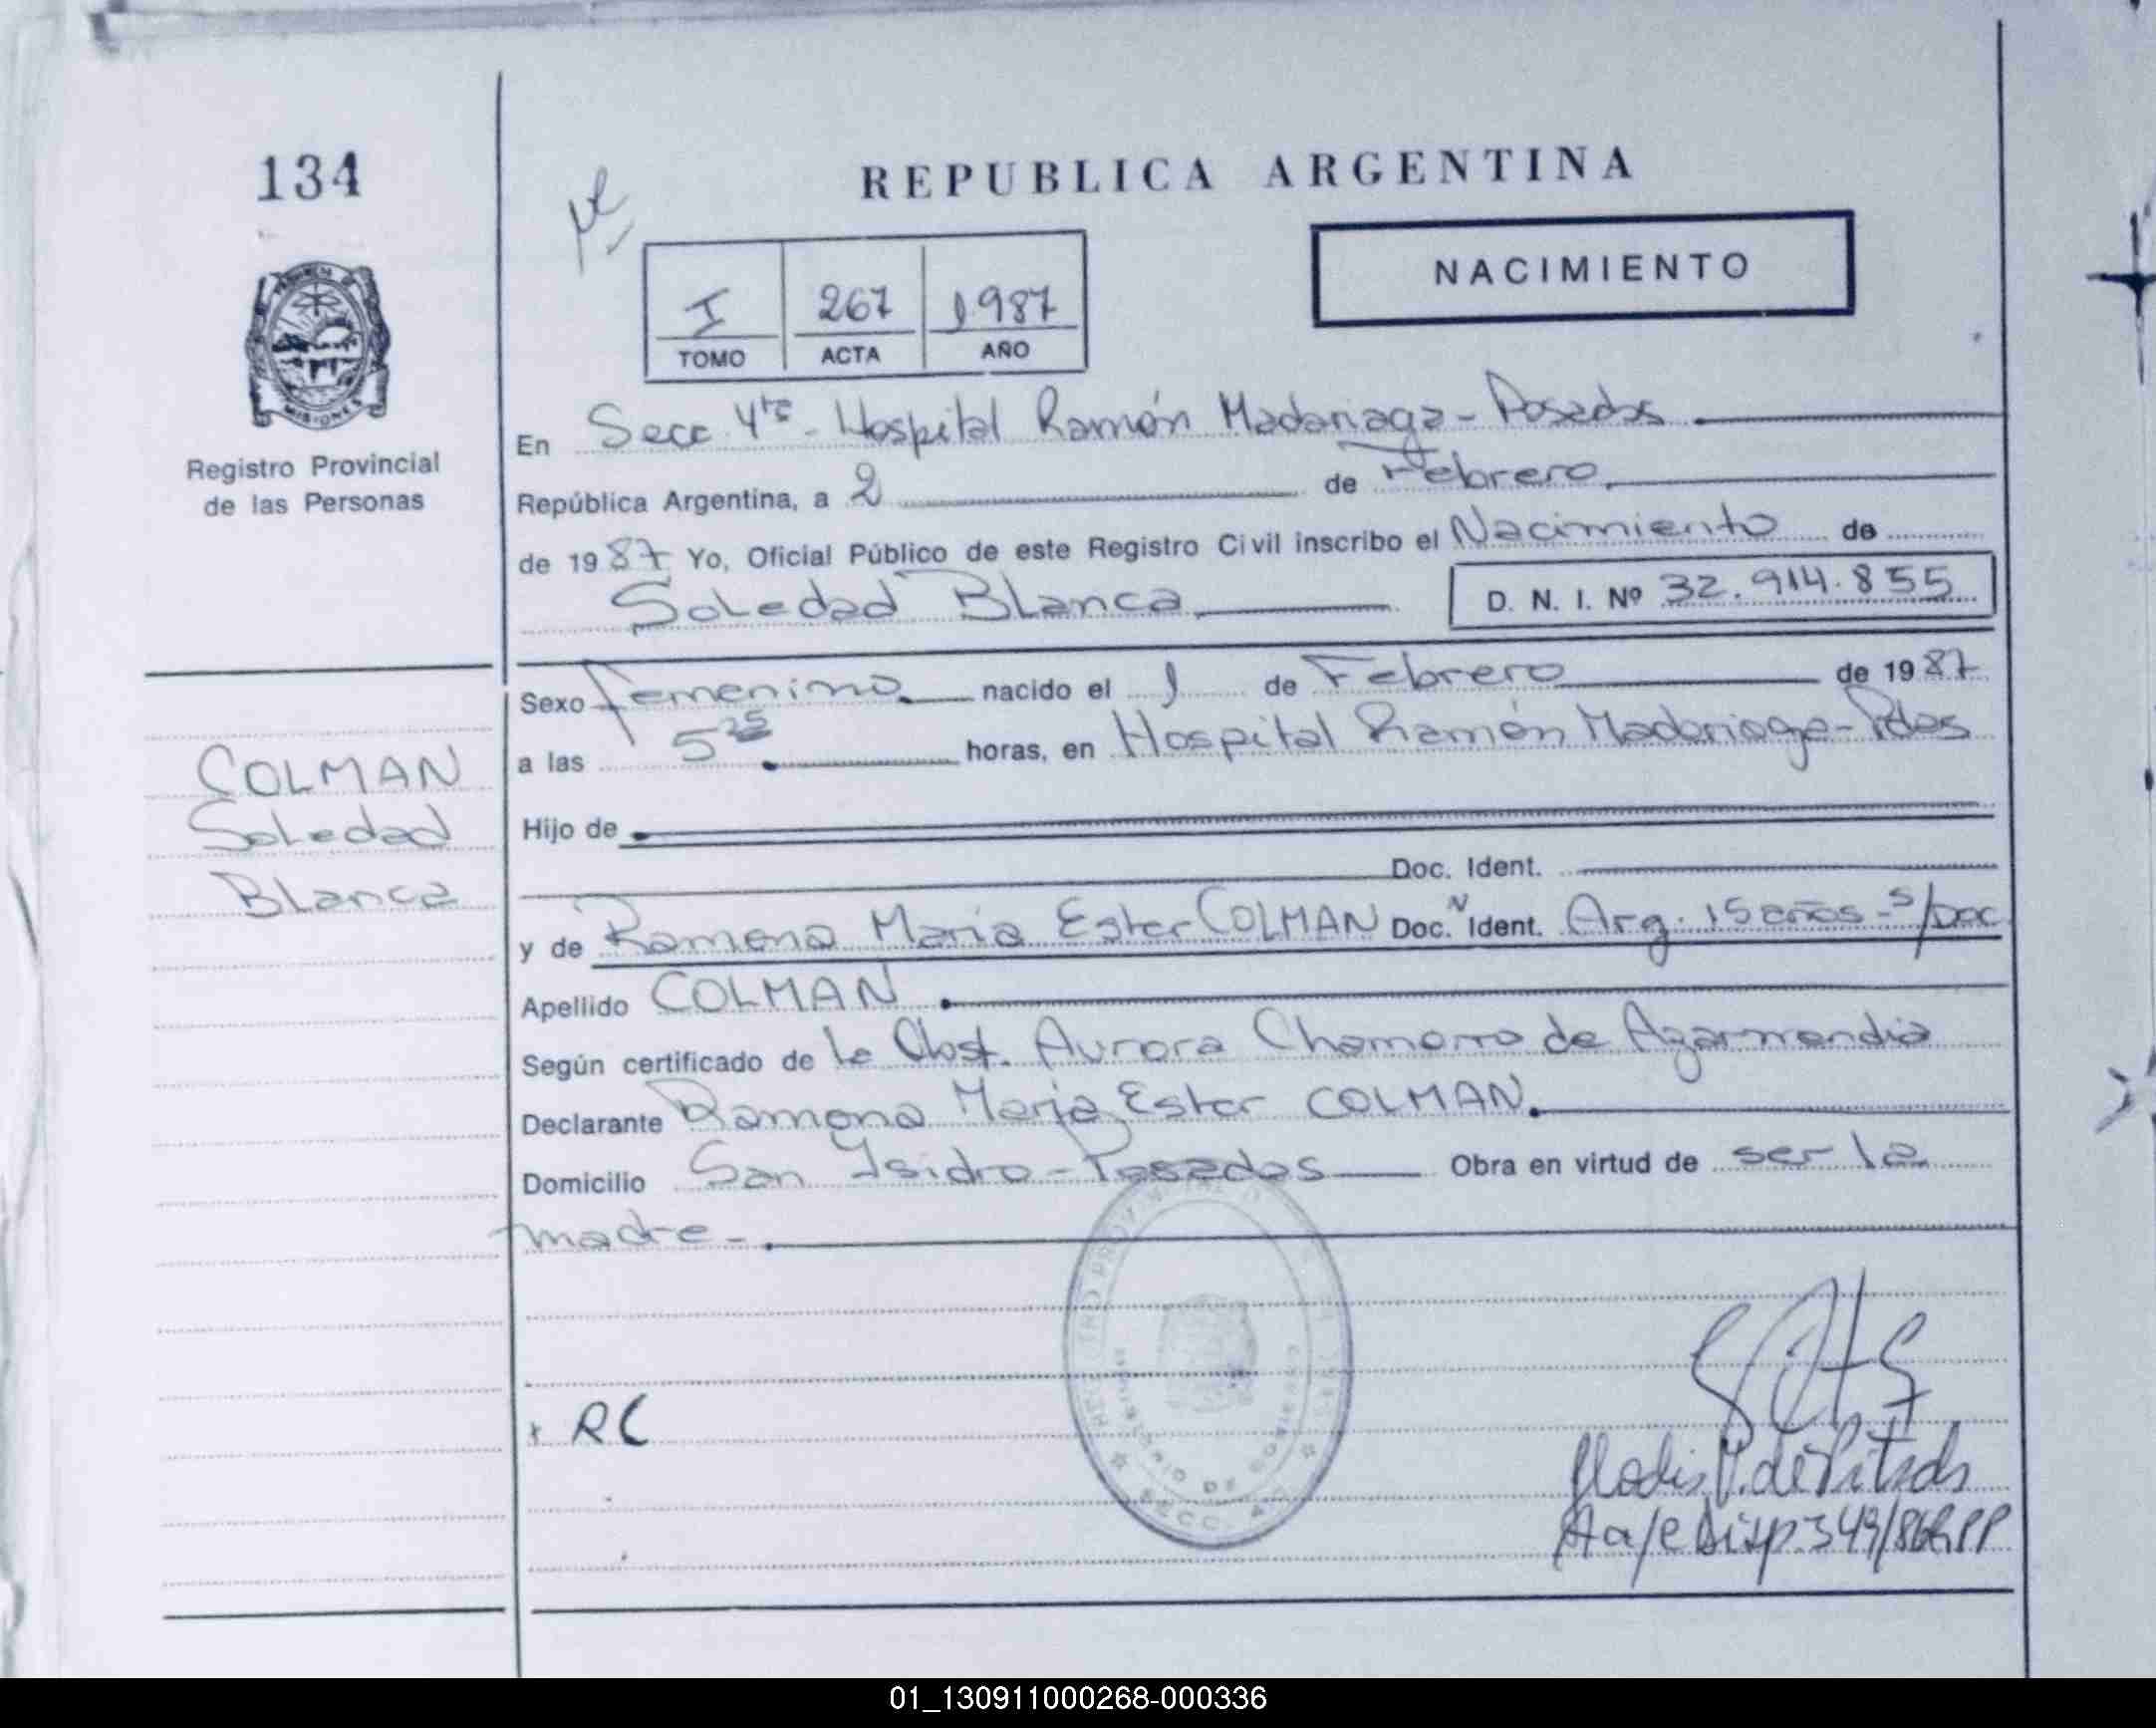 134
REPUBLICA ARGENTINA
NACIMIENTO
I 267 1987
TOMO ACTA AÑO
MISIONES
Registro Provincial
de las Personas
En Secc 4ta - Hospital Ramón Madariaga - Posadas
República Argentina, a 2 de Febrero
de 1987 Yo, Oficial Público de este Registro Civil inscribo el Nacimiento de
Soledad Blanca D. N. I. Nº 32.914.855
Sexo Femenino nacido el 1 de Febrero de 1987
a las 5 25 horas, en Hospital Ramón Madariaga - Pdas
COLMAN
Soledad
Blanca
Hijo de
Doc. Ident.
y de Ramona María Ester COLMAN Doc. Ident. Arg. 15 años - s/Doc
Apellido COLMAN
Según certificado de la Obst. Aurora Chamorro de Azarmendia
Declarante Ramona María Ester COLMAN
Domicilio San Ysidro - Posadas Obra en virtud de ser la
madre -
+ RC
MINISTERIO DE GOBIERNO
SECC. 4
349/86 RPP
01_130911000268-000336